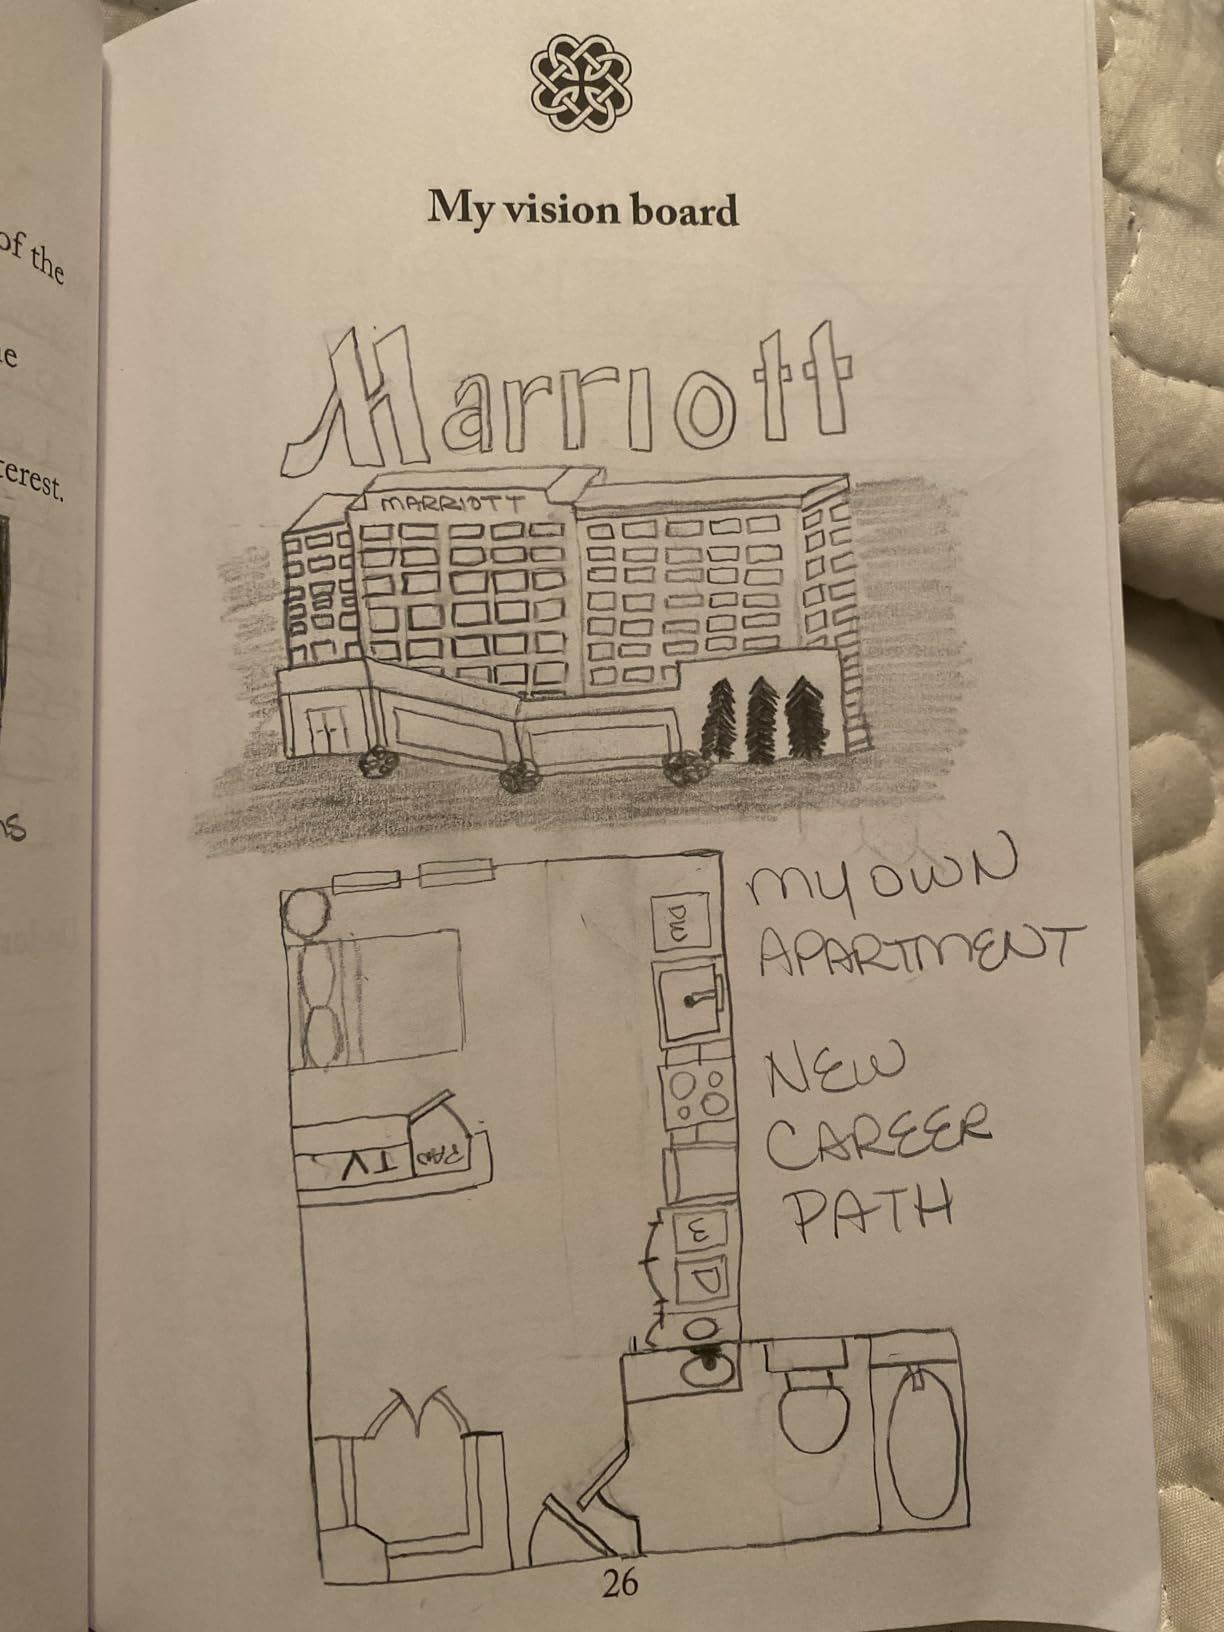 of the
terest.
My vision board
Marriott
MARRIOTT
MY OWN
APARTMENT
DW
NEW
CAREER
PATH
TV
W
D
26